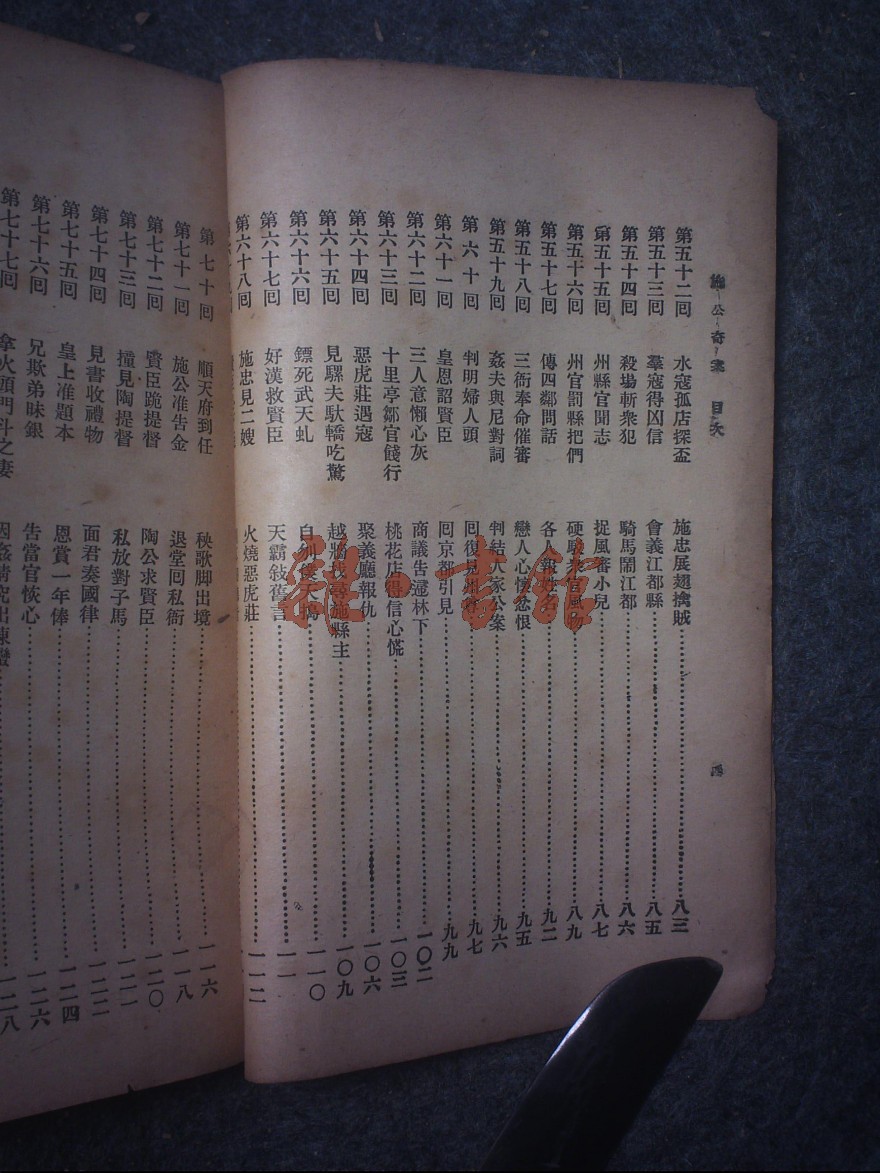 施公奇案 目次
四
第五十二囘 水寇孤店探盃 施忠展翅擒賊 八三
第五十三囘 羣寇得凶信 會義江都縣 八五
第五十四囘 殺場斬衆犯 騎馬鬧江都 八六
第五十五囘 州縣官聞志 捉風審小兒 八七
第五十六囘 州官罰縣把們 硬駁 八九
第五十七囘 傳四鄰問話 各人報姓名 九二
第五十八囘 三衙奉命催審 戀人心懷忿恨 九五
第五十九囘 姦夫與尼對詞 判結人家公案 九六
第六十囘 判明婦人頭 囘復見州 九七
第六十一囘 皇恩詔賢臣 囘京都引見 九九
第六十二囘 三人意懶心灰 商議告辭林下 一〇二
第六十三囘 十里亭鄒官餞行 桃花店得信心慌 一〇三
第六十四囘 惡虎莊遇寇 聚義廳報仇 一〇六
第六十五囘 見騾夫馱轎吃驚 越牆找尋施縣主 一〇九
第六十六囘 鏢死武天虬 自刎濮天 一一〇
第六十七囘 好漢救賢臣 天霸敍舊言 一一
第六十八囘 施忠見二嫂 火燒惡虎莊 一一二
第七十囘 順天府到任 秧歌脚出境 一一六
第七十一囘 施公准告金 退堂囘私衙 一一八
第七十二囘 賢臣跪提督 陶公求賢臣 一二〇
第七十三囘 撞見陶提督 私放對子馬 一二一
第七十四囘 見書收禮物 面君奏國律 一二二
第七十五囘 皇上准題本 恩賞一年俸 一二四
第七十六囘 兄欺弟昧銀 告當官恢心 一二六
第七十七囘 拿火頭門斗之妻 因姦情究出 一二八